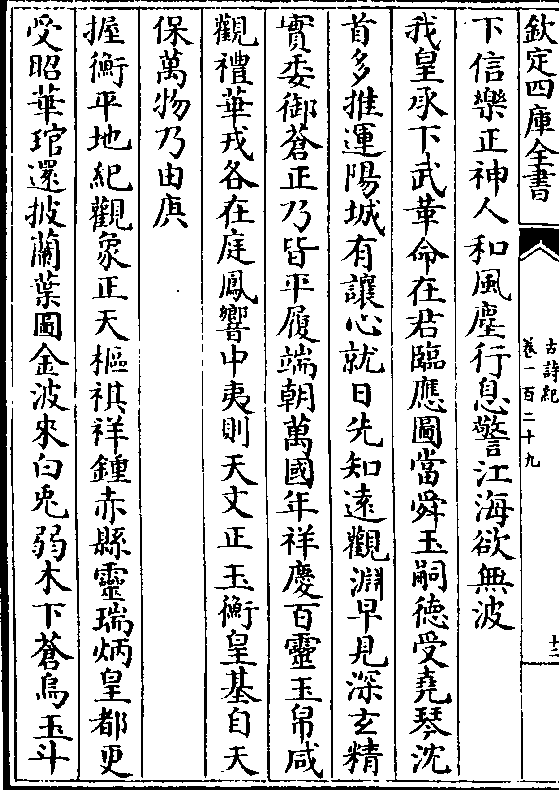 欽定四庫全書
古詩紀
卷一百二十九
十二
下信樂正神人和風塵行息警江海欲無波
我皇承下武革命在君臨應圖當舜玉嗣德受堯琴沈
首多推運陽城有讓心就日先知遠觀淵早見深玄精
實委御蒼正乃皆平履端朝萬國年祥慶百靈玉帛咸
觀禮華戎各在庭鳳響中夷則天文正玉衡皇基自天
保萬物乃由庚
握衡平地紀觀象正天樞祺祥鍾赤縣靈瑞炳皇都更
受昭華琯還披蘭葉圖金波來白兎弱木下蒼烏玉斗